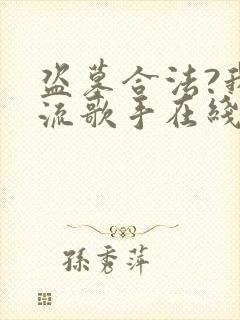 盗墓合法?我
流歌手在綫
孫秀萍